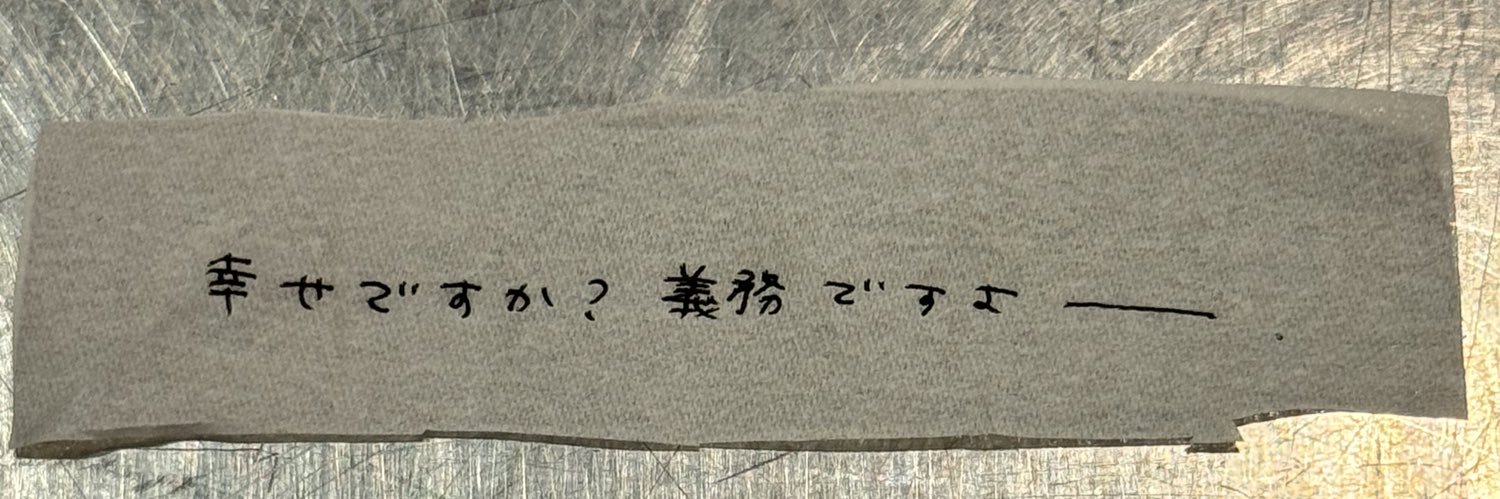 幸せですか? 義務ですよ――.